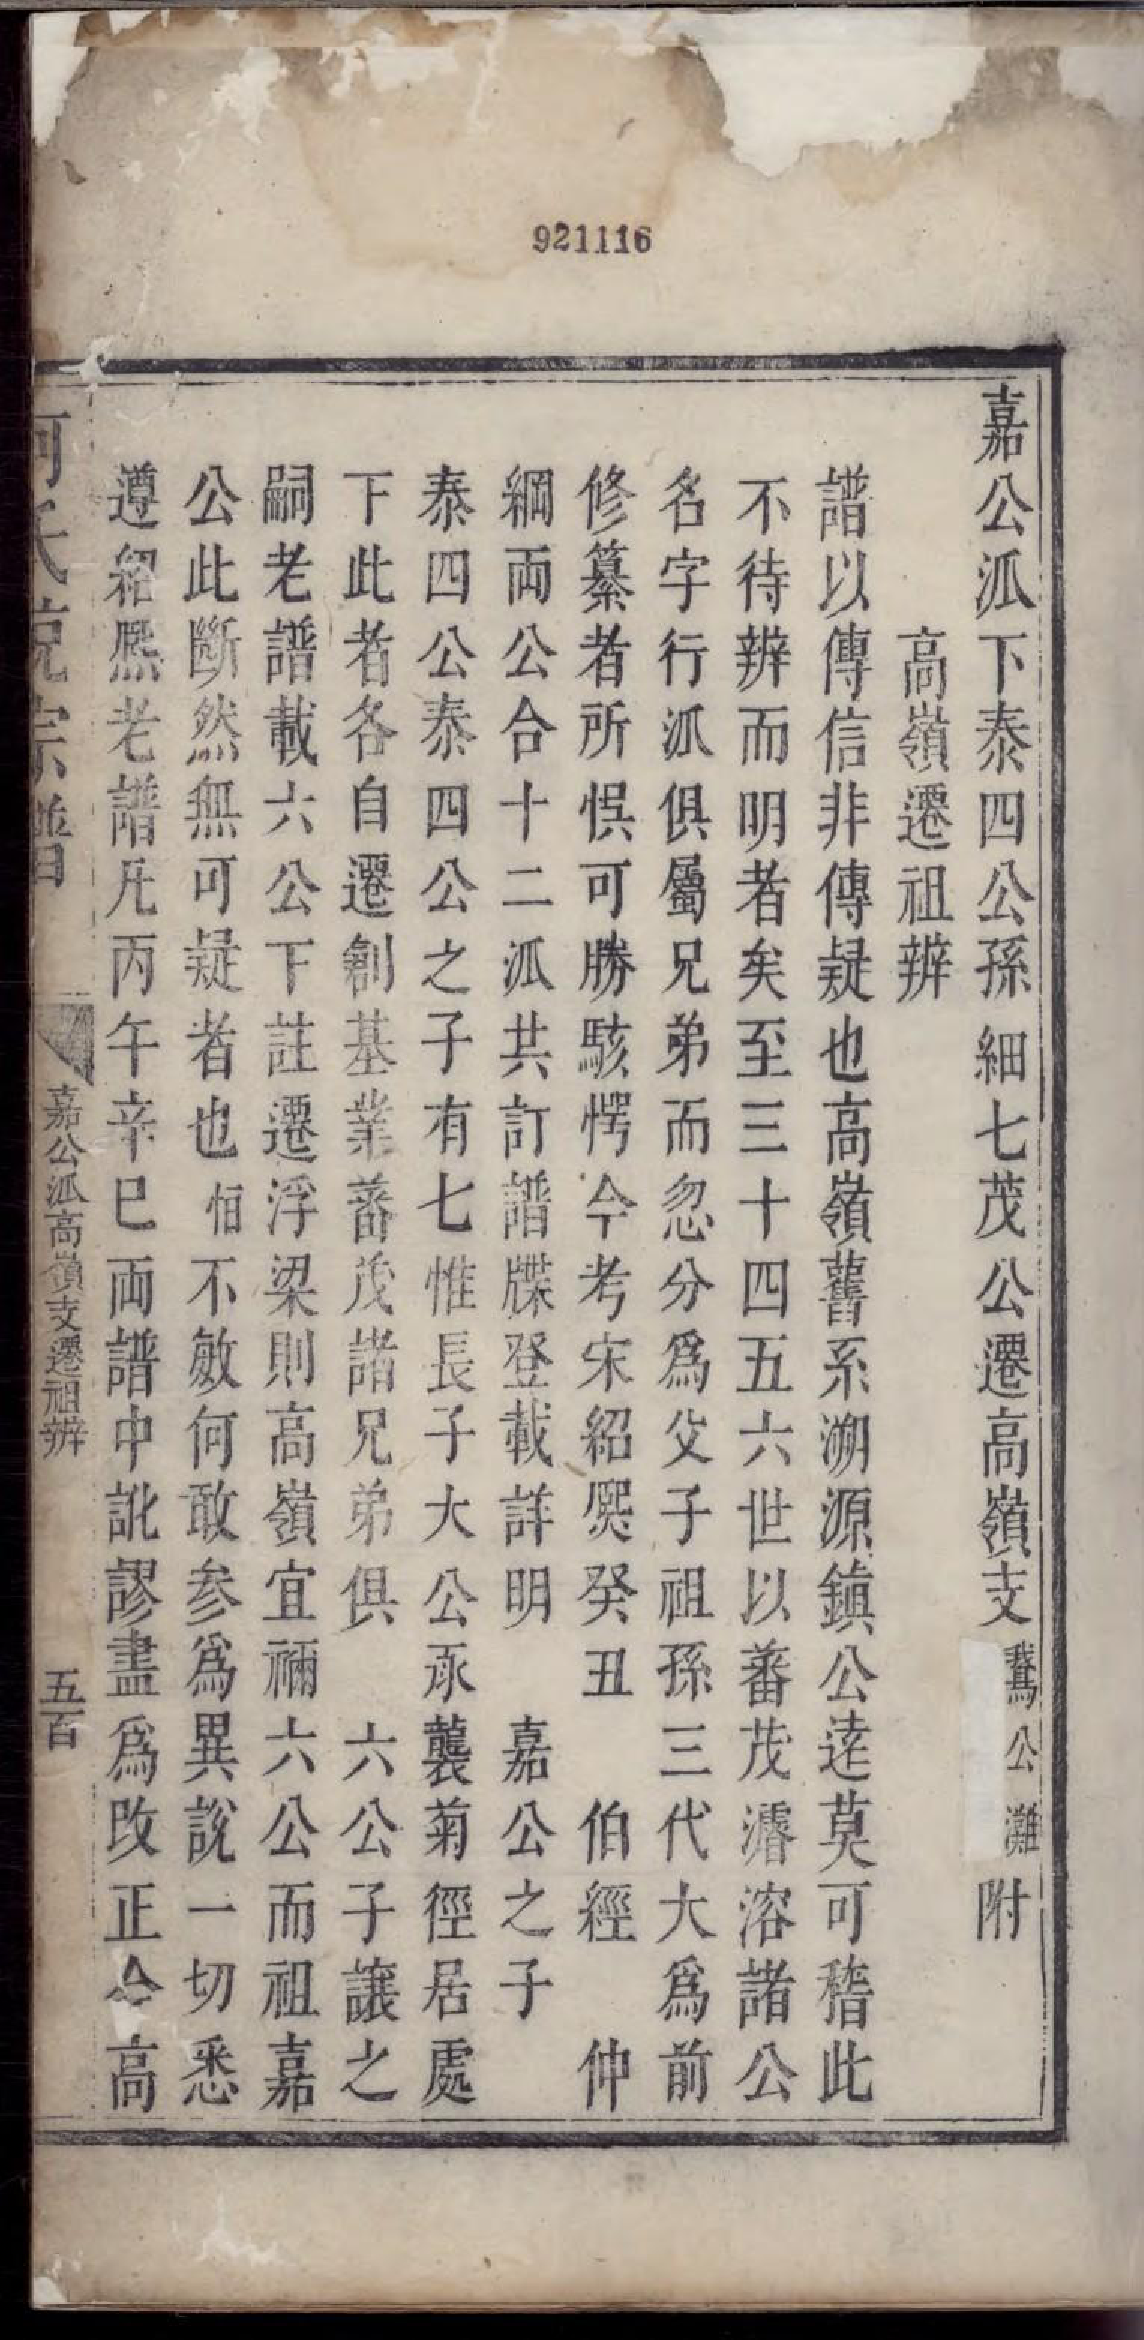 921116
嘉公派下泰四公孫細七茂公遷高嶺支鵞公灘附
高嶺遷祖辨
譜以傳信非傳疑也高嶺舊系溯源鎮公逹莫可稽此
不待辨而明者矣至三十四五六世以蕃茂濬溶諸公
名字行派俱屬兄弟而忽分爲父子祖孫三代大爲前
修纂者所悞可勝駭愕今考宋紹熙癸丑 伯經 仲
綱両公合十二派共訂譜牒登載詳明 嘉公之子
泰四公泰四公之子有七惟長子大公承襲菊徑居處
下此者各自遷創基業蕃茂諸兄弟俱 六公子讓之
嗣老譜載六公下註遷浮梁則高嶺宜禰六公而祖嘉
公此斷然無可疑者也恒不敏何敢参爲異說一切悉
遵紹熙老譜凡丙午辛巳両譜中訛謬盡爲改正今高
何氏統宗譜 嘉公派高嶺支遷祖辨 五百